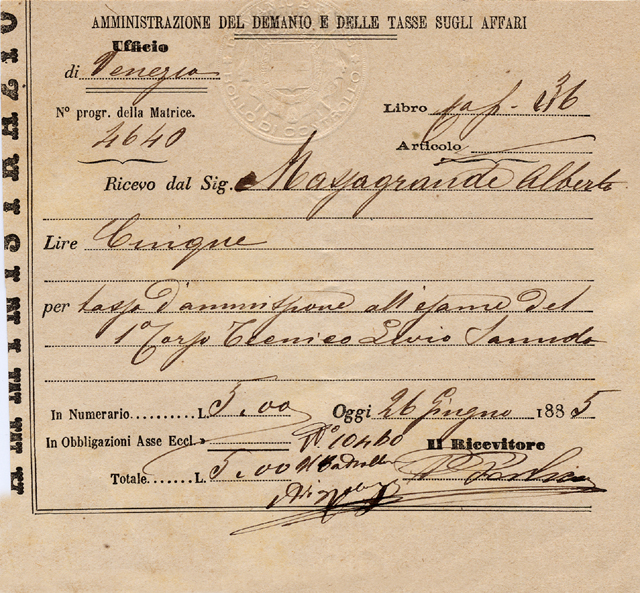 AMMINISTRAZIONE DEL DEMANIO E DELLE TASSE SUGLI AFFARI
Ufficio
di Venezia
N° progr. della Matrice.
4640
Libro 36
Articolo
BOLLO DI CONTROLLO
Ricevo dal Sig. Massagrande Alberto
Lire Cinque
per tassa d'ammissione all'esame del
1° Corso Tecnico Livio Sanudo
In Numerario L. 5.00
Oggi 26 Giugno 1885
In Obbligazioni Asse Eccl. »
N° 10460
Il Ricevitore
Totale L. 5.00